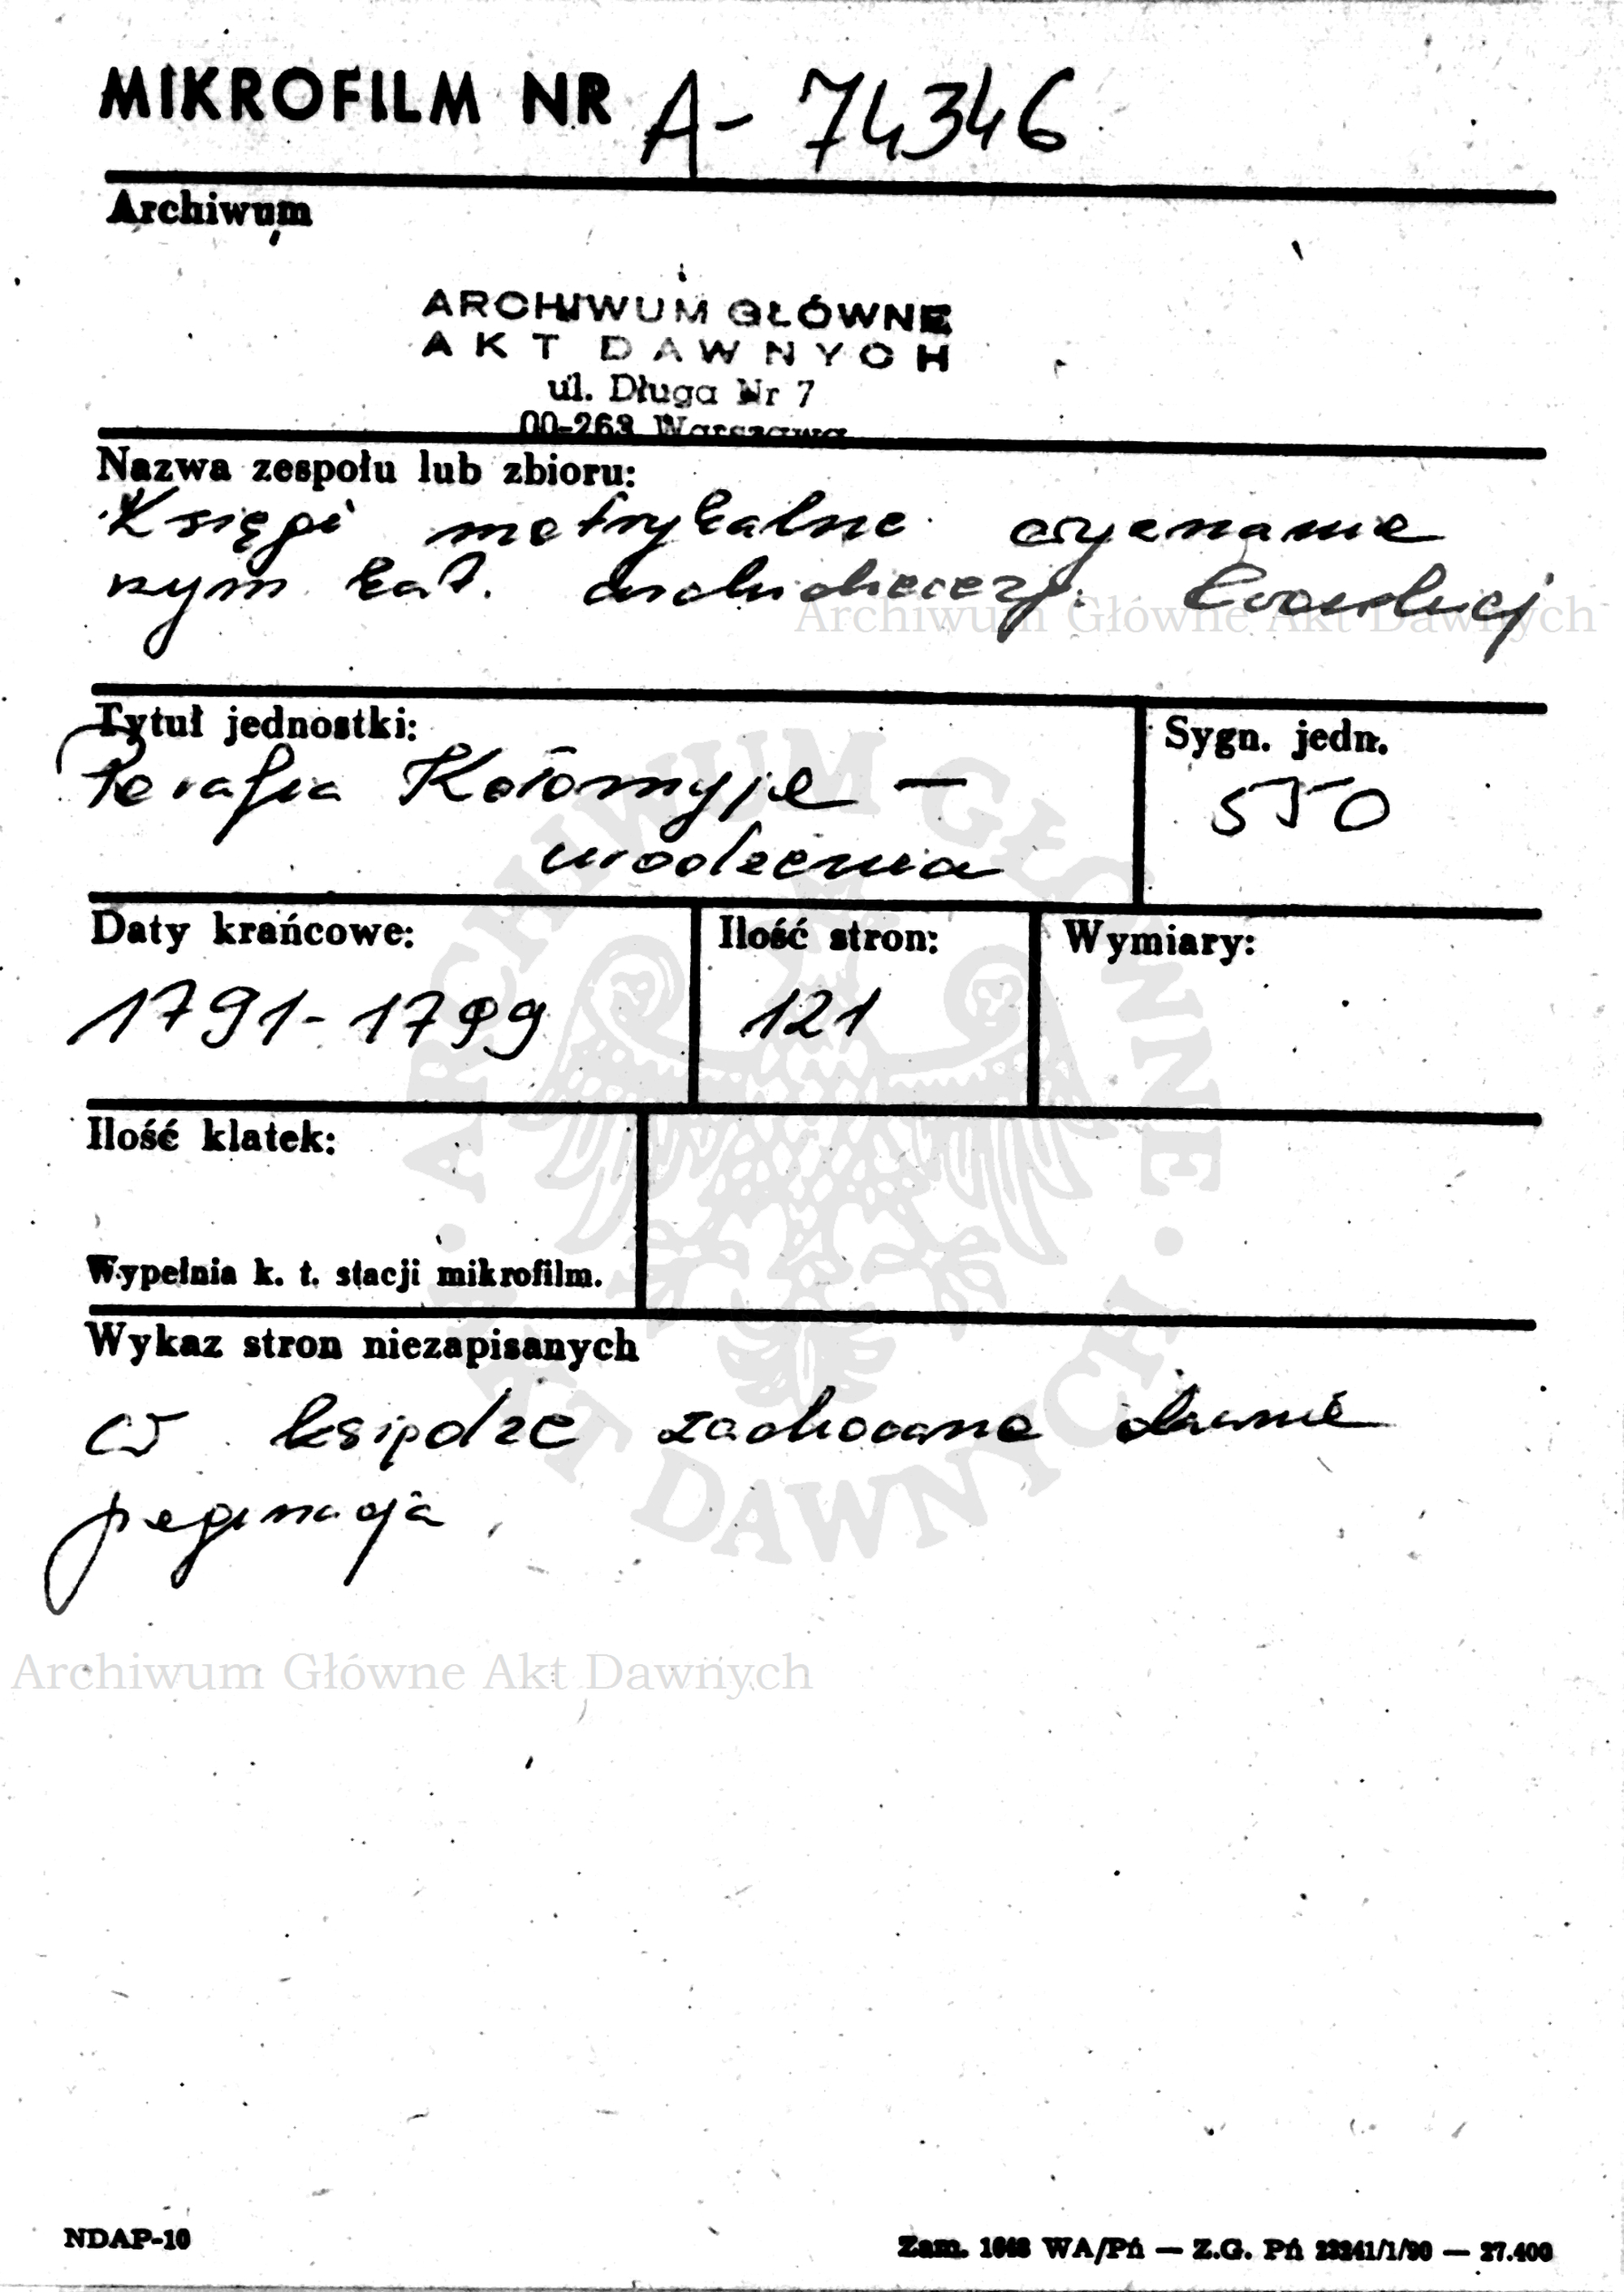 MIKROFILM NR A-74346
Archiwum
ARCHIWUM GŁÓWNE
AKT DAWNYCH
ul. Długa Nr 7
00-263 Warszawa
Nazwa zespołu lub zbioru:
Księgi metrykalne wyznania
rzym. kat. archidiecezji Lwowskiej
Archiwum Główne Akt Dawnych
Tytuł jednostki:
Sygn. jedn.
Parafia Kołomyja –
urodzenia
550
Daty krańcowe:
Ilość stron:
Wymiary:
1791-1799
121
Ilość klatek:
Wypełnia k. t. stacji mikrofilm.
Wykaz stron niezapisanych
w księdze zachowano dawną
paginację
ARCHIWUM GŁÓWNE AKT DAWNYCH
Archiwum Główne Akt Dawnych
NDAP-10
Zam. WA/Pń — Z.G. Pń — 27.400